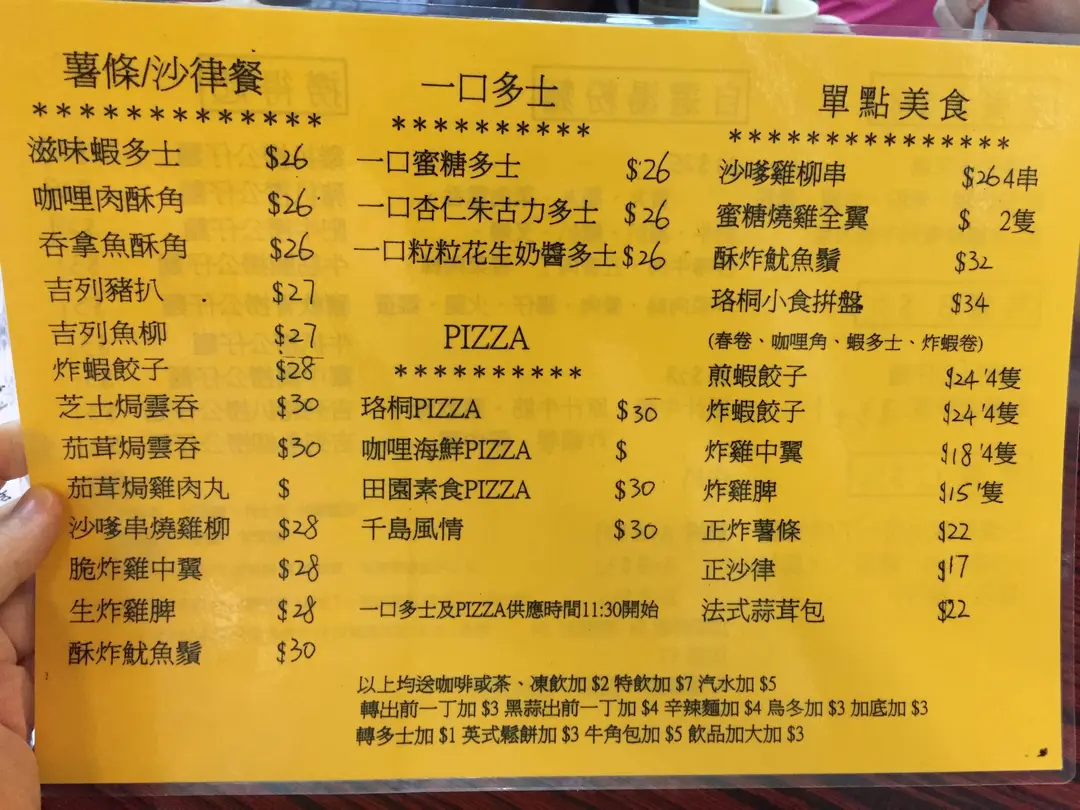 薯條/沙律餐
*************
滋味蝦多士 $26
咖哩肉酥角 $26
吞拿魚酥角 $26
吉列豬扒 $27
吉列魚柳 $27
炸蝦餃子 $28
芝士焗雲吞 $30
茄茸焗雲吞 $30
茄茸焗雞肉丸 $
沙嗲串燒雞柳 $28
脆炸雞中翼 $28
生炸雞脾 $28
酥炸魷魚鬚 $30
一口多士
**********
一口蜜糖多士 $26
一口杏仁朱古力多士 $26
一口粒粒花生奶醬多士 $26
PIZZA
**********
珞桐PIZZA $30
咖哩海鮮PIZZA $
田園素食PIZZA $30
千島風情 $30
一口多士及PIZZA供應時間11:30開始
單點美食
**************
沙嗲雞柳串 $26 4串
蜜糖燒雞全翼 $ 2隻
酥炸魷魚鬚 $32
珞桐小食拼盤 $34
(春卷、咖哩角、蝦多士、炸蝦卷)
煎蝦餃子 $24 '4隻
炸蝦餃子 $24 '4隻
炸雞中翼 $18 '4隻
炸雞脾 $15 '隻
正炸薯條 $22
正沙律 $17
法式蒜茸包 $22
以上均送咖啡或茶、凍飲加 $2 特飲加 $7 汽水加 $5
轉出前一丁加 $3 黑蒜出前一丁加 $4 辛辣麵加 $4 烏冬加 $3 加底加 $3
轉多士加 $1 英式鬆餅加 $3 牛角包加 $5 飲品加大加 $3